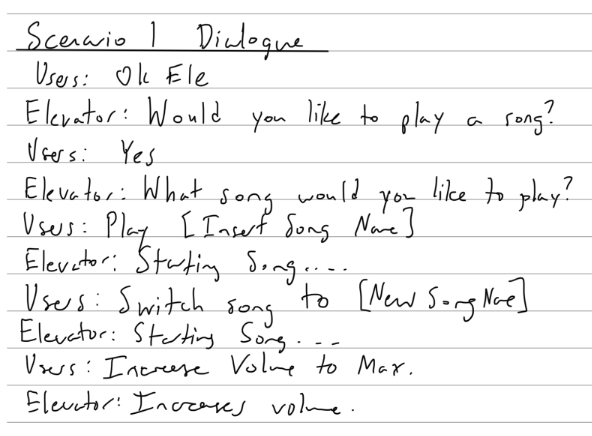 Scenario 1 Dialogue
Users: Ok Ele
Elevator: Would you like to play a song?
Users: Yes
Elevator: What song would you like to play?
Users: Play [Insert Song Name]
Elevator: Starting Song....
Users: Switch song to [New Song Name]
Elevator: Starting Song...
Users: Increase Volume to Max.
Elevator: Increases volume.